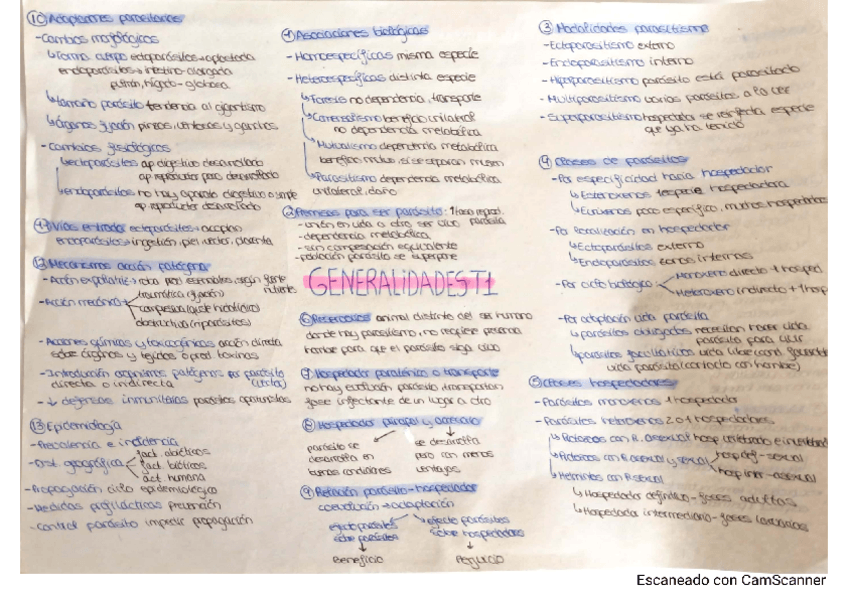 GENERALIDADES T1
① Asociaciones biológicas
- Homoespecíficas misma especie
- Heterospecíficas distinta especie
↳ Foresis no dependencia, transporte
↳ Comensalismo beneficio unilateral
no dependencia metabólica
↳ Mutualismo dependencia metabólica
beneficio mutuo, si se separan mueren
↳ Parasitismo dependencia metabólica
unilateral, daño
② Premisas para ser parásito: 1 fase
- unión en vida a otro ser vivo parásita
- dependencia metabólica
- sin compensación equivalente
- población parásito se superpone
③ Modalidades parasitismo
- Ectoparasitismo externo
- Endoparasitismo interno
- Hiperparasitismo parásito está parasitado
- Multiparasitismo varios parásitos a la vez
- Superparasitismo hospedador se reinfecta especie
que ya ha tenido
④ Clases de parásitos
- Por especificidad hacia hospedador
↳ Estenoxenos 1 especie hospedadora
↳ Eurixenos poco específico, muchos hospedadores
- Por localización en hospedador
↳ Ectoparásitos externo
↳ Endoparásitos zonas internas
- Por ciclo biológico
Monoxeno directo + 1 hosped
Heteroxeno indirecto + 1 hosp
- Por adaptación vida parásita
↳ parásitos obligados necesitan hacer vida
parásita para vivir
↳ parásitos facultativos vida libre
vida parásita (contacto con hombre)
⑤ Clases hospedadores
- Parásitos monoxenos 1 hospedador
- Parásitos heteroxenos 2 o + hospedadores
↳ Protozoos con R. asexual hosp vertebrado e invertebrad
↳ Protozoos con R asexual y sexual
hosp def - sexual
hosp inter - asexual
↳ Helmintos con R sexual
↳ Hospedador definitivo - fases adultas
↳ Hospedador intermediario - fases larvarias
⑥ Reservorios animal distinto del ser humano
donde hay parasitismo, no requiere presencia
hombre para que el parásito siga vivo
⑦ Hospedador paraténico o transporte
no hay evolución parásito, transportan
fase infectante de un lugar a otro
⑧ Hospedador principal y accesorio
parásito se
desarrolla en
buenas condiciones
se desarrolla
pero con menos
ventajas
⑨ Relación parásito-hospedador
coevolución → adaptación
efecto parásitos
sobre hospedadores
Beneficio
Perjuicio
⑩ Adaptaciones parasitarias
- Cambios morfológicos
↳ Forma cuerpo ectoparásitos → aplastada
endoparásitos → intestino - alargada
pulmón, hígado - globosa
↳ tamaño parásito tendencia al gigantismo
↳ órganos fijación pinzas, ventosas y ganchos
- Cambios fisiológicos
↳ ectoparásitos ap digestivo desarrollado
ap reproductor poco desarrollado
↳ endoparásitos no hay aparato digestivo o simple
ap. reproductor desarrollado
⑪ Vías entrada ectoparásitos →
endoparásitos → ingestión, piel, vector, placenta
⑫ Mecanismos acción patógena
- Acción expoliatriz → roba prod esenciales, según fuente
nutriente
- Acción mecánica
traumática (fijación)
compresiva (quiste hidatídico)
obstructiva (nº parásitos)
- Acciones químicas y toxicogénicas acción directa
sobre órganos y tejidos o prod. toxinas
- Introducción organismos patógenos por parásito
directa o indirecta
- ↓ defensas inmunitarias parásitos oportunistas
⑬ Epidemiología
- Prevalencia e incidencia
- Dist. geográfica
fact. abióticos
fact. bióticos
act. humana
- Propagación ciclo epidemiológico
- Medidas profilácticas prevención
- Control parásito impedir propagación
Escaneado con CamScanner